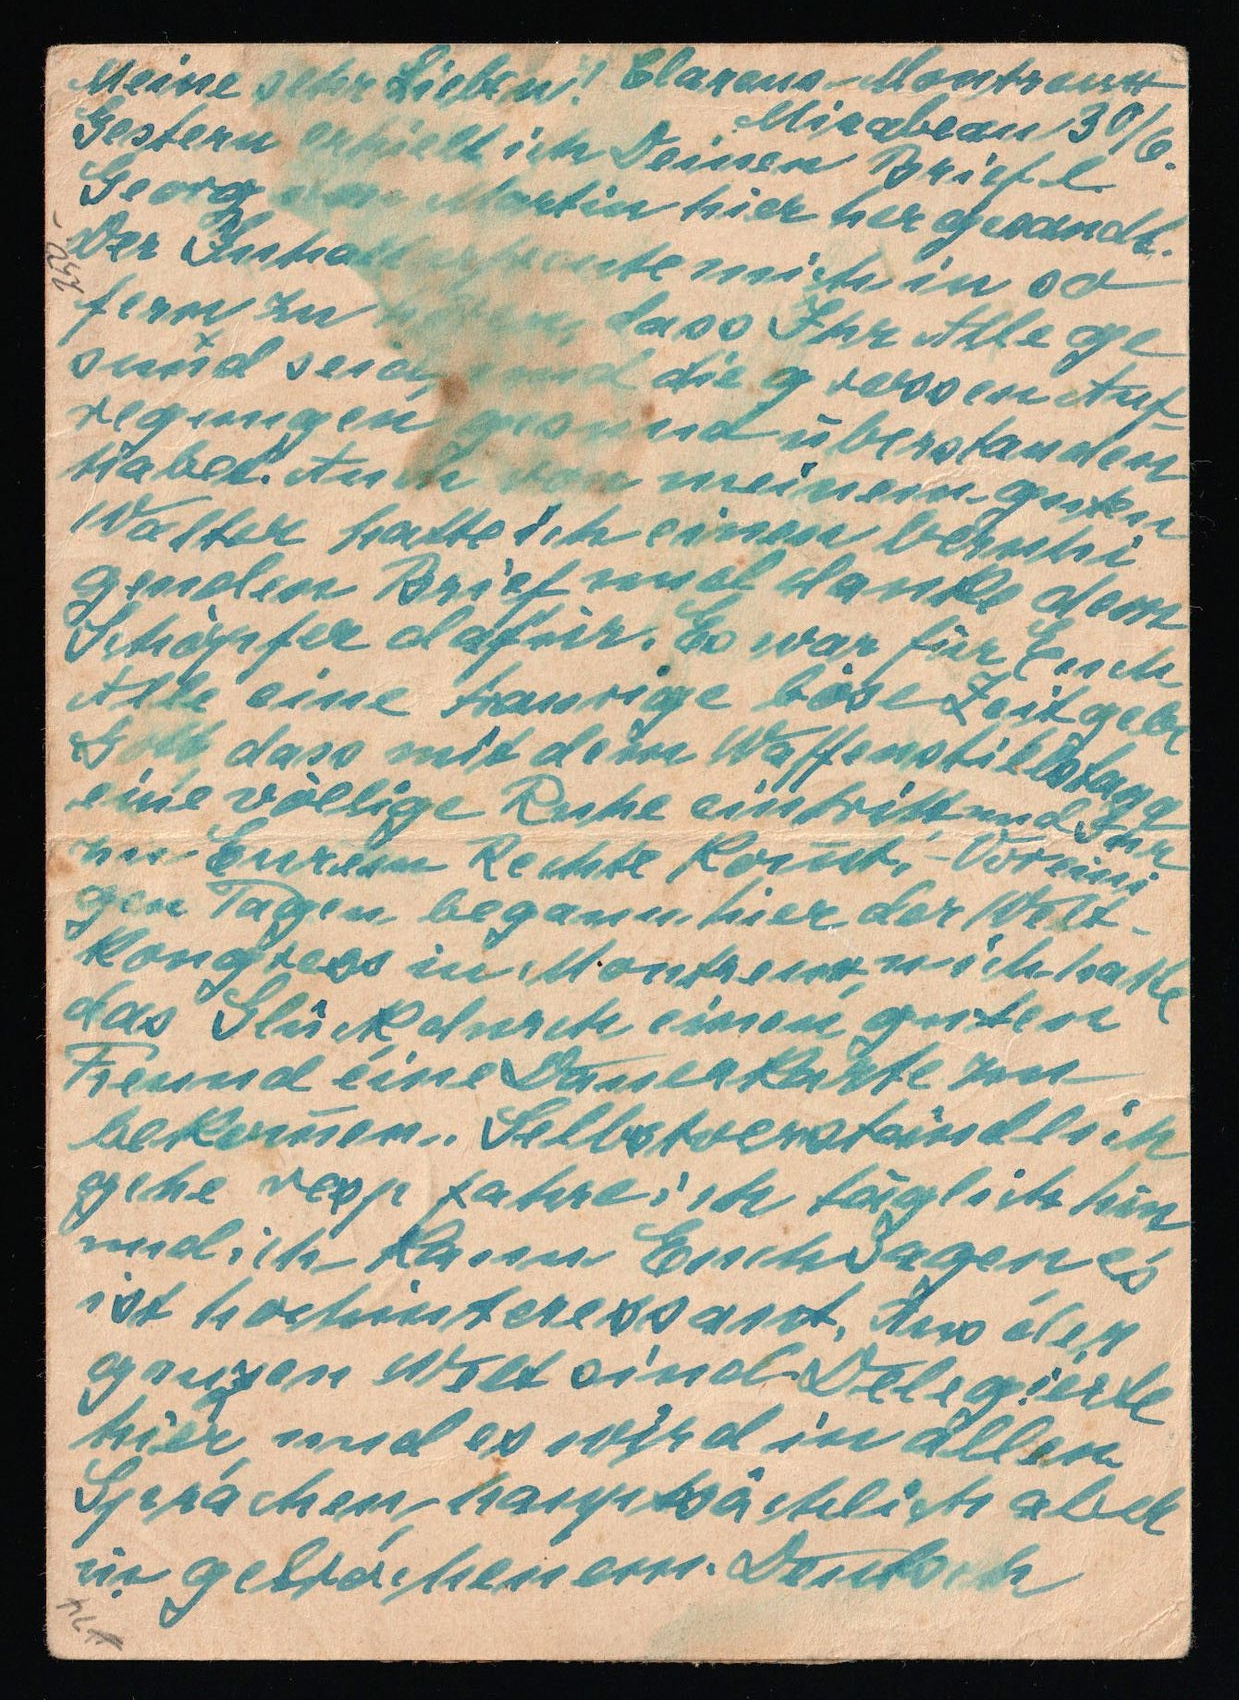 Meine sehr Lieben! Clarens-Montreux
Mirabeau 30/6.
Gestern erhielt ich Deinen Brief l.
Georg von Martin hier her gesandt.
Der Inhalt mich in so
fern zu dass Ihr Alle ge
sund seid, und die grossen Auf-
regungen gesund überstanden
habet. Auch von meinem guten
Walter hatte ich einen beruhi
genden Brief und danke dem
Schöpfer dafür. Es war für Euch
Alle eine traurige böse Zeit gebe
Gott dass mit dem Waffenstillstand
eine völlige Ruhe eintritt und Ihr
zu Eurem Rechte kom̄t. - Vor eini
gen Tagen begann hier der Welt-
Kongress in Montreux u ich hatte
das Glück durch einen guten
Freund eine Dauerkarte zu
bekom̄en.. Selbstverständlich
gehe resp fahre ich täglich hin
und ich kann Euch sagen es
ist hochinteressant. Aus der
ganzen Welt sind Delegierte
hier, und es wird in allen
Sprachen, hauptsächlich aber
in gebrochenem Deutsch
250.-